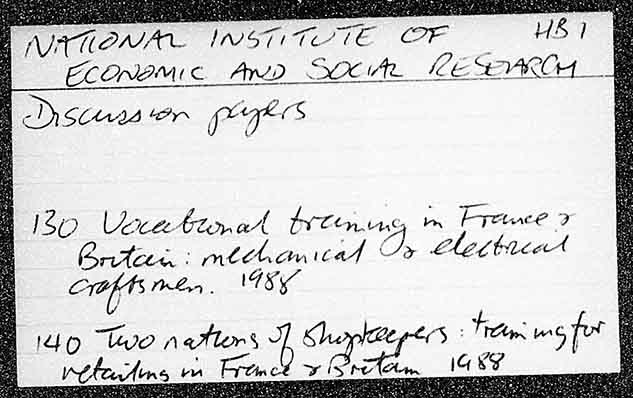 NATIONAL INSTITUTE OF HB 1
ECONOMIC AND SOCIAL RESEARCH
Discussion papers
130 Vocational training in France &
Britain: mechanical & electrical
craftsmen. 1988
140 Two nations of shopkeepers: training for
retailing in France & Britain 1988